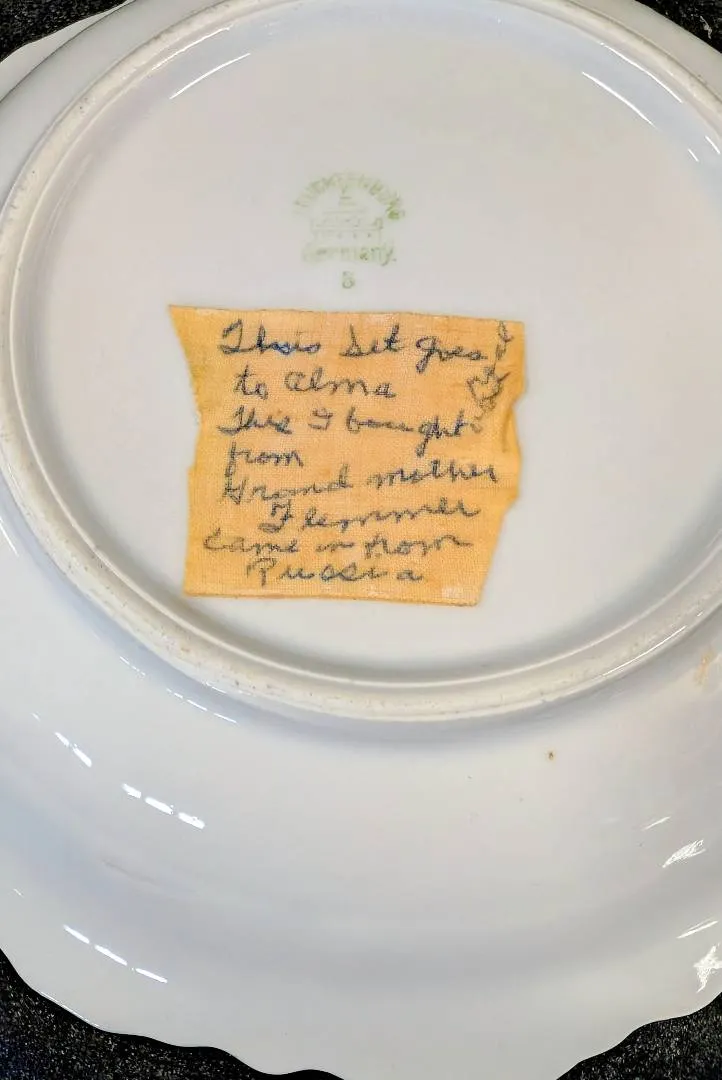 Germany.
8
This Set goes
to Alma
This I bought
from
Grand mother
Flemmer
came in from
Russia